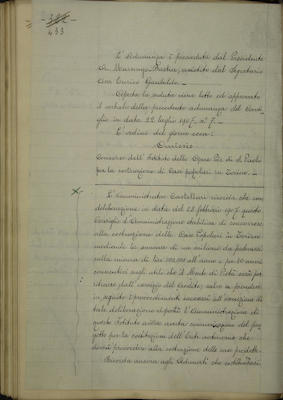 433
L'adunanza è presieduta dal Presidente
assistito dal Segretario
Enrico Gambaldo.
Aperta la seduta viene letto ed approvato
il verbale della precedente adunanza del Consi-
glio in data 22 luglio 1907, n° 7.
L'ordine del giorno reca:
Concorso dell'Istituto delle Opere Pie di S. Paolo
per la costruzione di Case popolari in Torino.
L'Amministratore Castellari ricorda che con
deliberazione in data del 28 febbraio 1907 questo
Consiglio d'Amministrazione stabiliva di concorrere
alla costruzione delle Case Popolari in Torino
mediante la somma di un milione da prelevarsi
nella misura di lire 100,000 all'anno e per 10 anni
consecutivi sugli utili che il Monte di Pietà
ritrarre dall'esercizio del Credito, salvo a prendere
in seguito i provvedimenti necessari all'esecuzione di
tale deliberazione
questo Istituto
getto per la costituzione dell'Ente autonomo che
dovrà provvedere alla costruzione delle case predette.
Ricorda ancora agli Adunati che